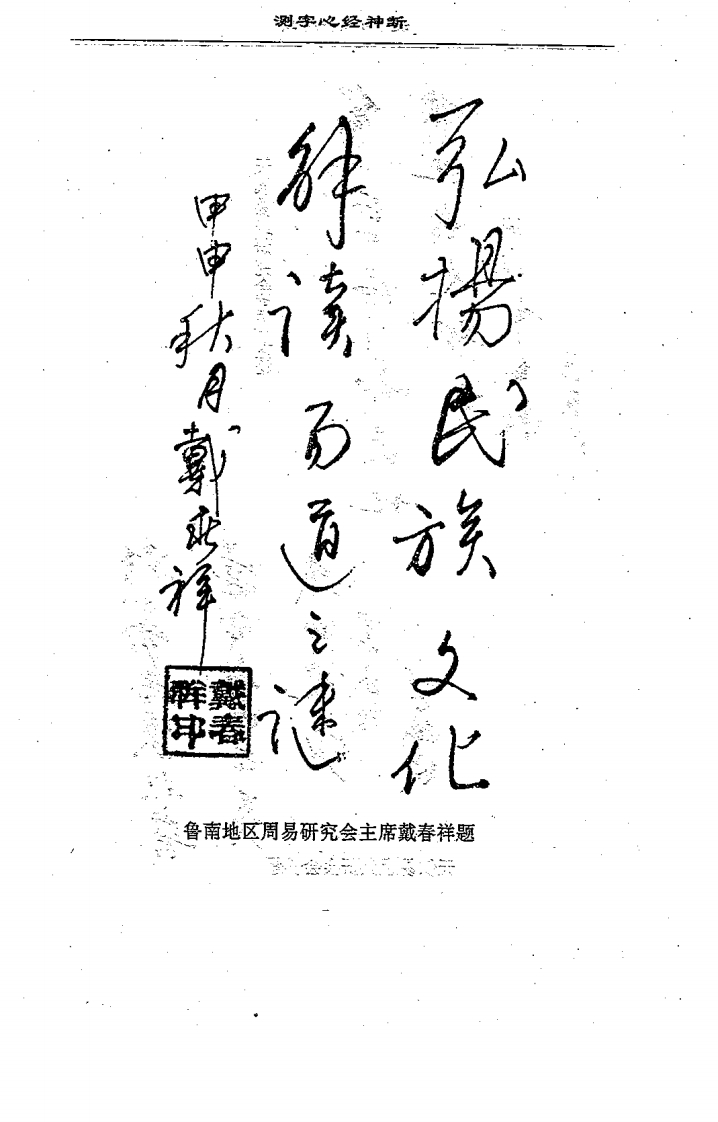 测字心经神断
弘揚民族文化
解读易道之谜
甲申秋月戴春祥
戴春祥印
鲁南地区周易研究会主席戴春祥题